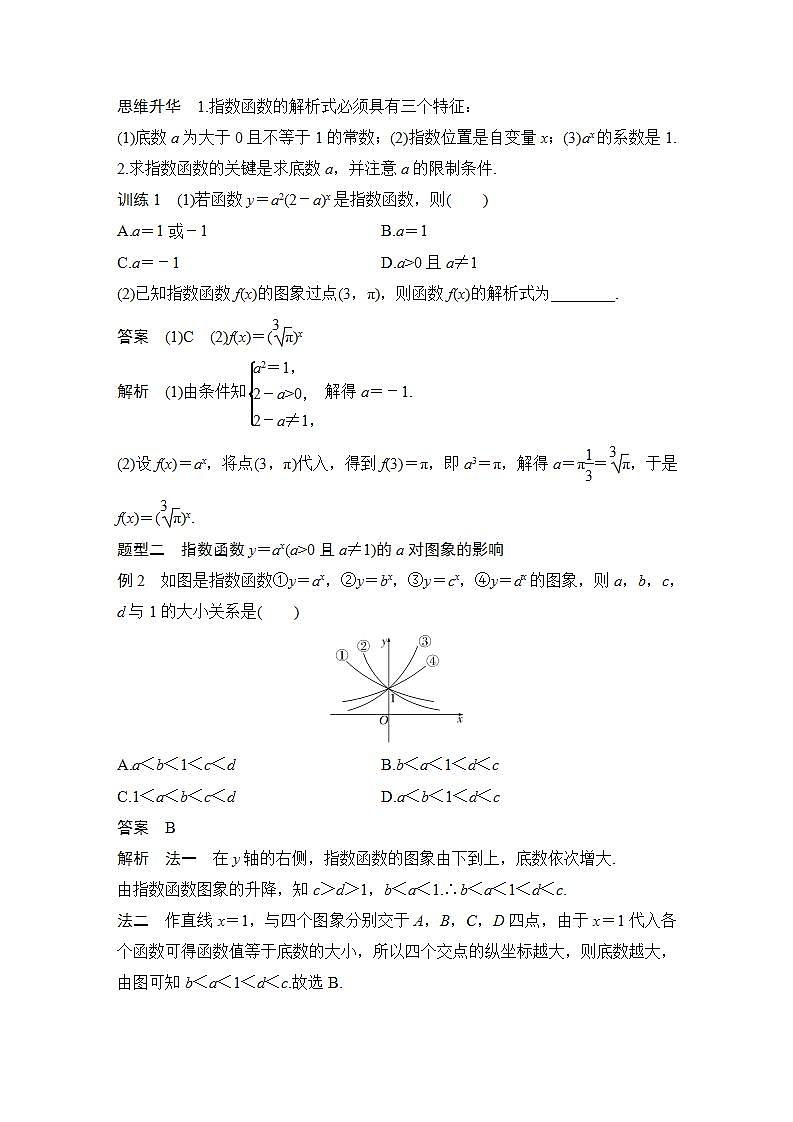 思维升华　1.指数函数的解析式必须具有三个特征：
(1)底数 a 为大于 0 且不等于 1 的常数；(2)指数位置是自变量 x；(3)aˣ 的系数是 1.
2.求指数函数的关键是求底数 a，并注意 a 的限制条件.
训练 1　(1)若函数 y＝a²(2－a)ˣ 是指数函数，则(　　)
A.a＝1 或－1　　B.a＝1
C.a＝－1　　D.a>0 且 a≠1
(2)已知指数函数 f(x)的图象过点(3，π)，则函数 f(x)的解析式为________.
答案　(1)C　(2)f(x)＝(∛π)ˣ
解析　(1)由条件知{a²＝1，
2－a>0，　解得 a＝－1.
2－a≠1，
(2)设 f(x)＝aˣ，将点(3，π)代入，得到 f(3)＝π，即 a³＝π，解得 a＝π1/3＝∛π，于是
f(x)＝(∛π)ˣ.
题型二　指数函数 y＝aˣ(a>0 且 a≠1)的 a 对图象的影响
例 2　如图是指数函数①y＝aˣ，②y＝bˣ，③y＝cˣ，④y＝dˣ 的图象，则 a，b，c，
d 与 1 的大小关系是(　　)
y
①　②　③　④
1
O　x
A.a＜b＜1＜c＜d　　B.b＜a＜1＜d＜c
C.1＜a＜b＜c＜d　　D.a＜b＜1＜d＜c
答案　B
解析　法一　在 y 轴的右侧，指数函数的图象由下到上，底数依次增大.
由指数函数图象的升降，知 c＞d＞1，b＜a＜1.∴b＜a＜1＜d＜c.
法二　作直线 x＝1，与四个图象分别交于 A，B，C，D 四点，由于 x＝1 代入各
个函数可得函数值等于底数的大小，所以四个交点的纵坐标越大，则底数越大，
由图可知 b＜a＜1＜d＜c.故选 B.